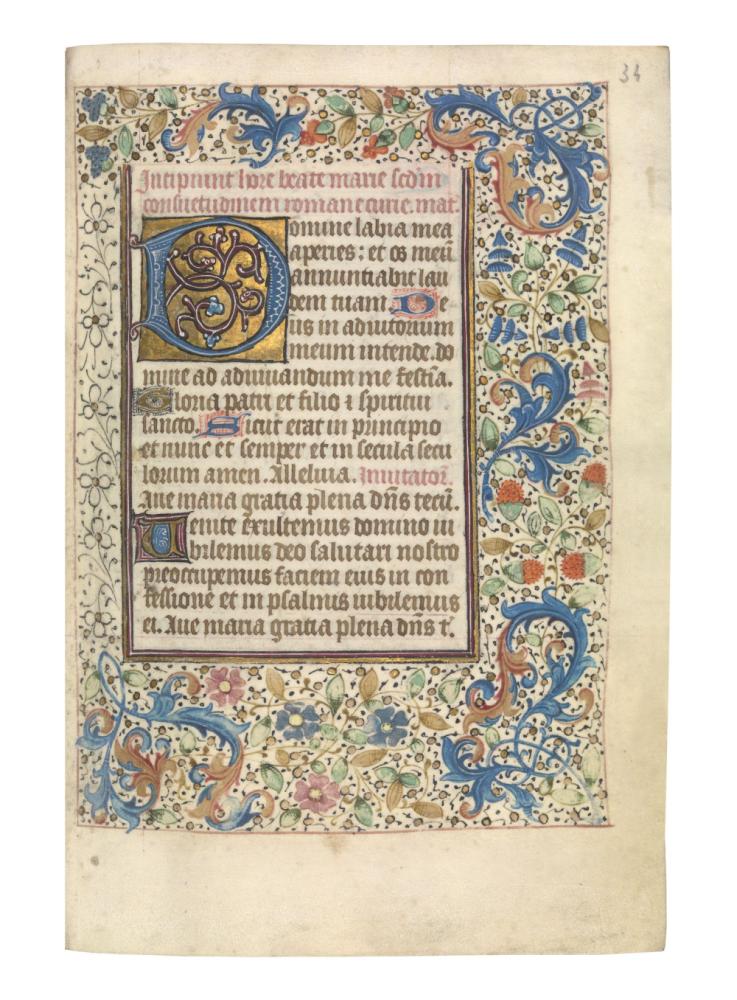 34
Incipiunt hore beate marie scd̄m
consuetudinem romane curie. mat̄.
Domine labia mea
aperies: et os meū
annuntiabit lau
dem tuam. De
us in adiutorium
meum intende. do
mine ad adiuuandum me festīa.
Gloria patri et filio ⁊ spiritui
sancto. Sicut erat in principio
et nunc et semper et in secula secu
lorum amen. Alleluia. Inuitator̄.
Aue maria gratia plena dn̄s tecū.
Uenite exultemus domino iu
bilemus deo salutari nostro
preoccupemus faciem eius in con
fessione et in psalmis iubilemus
ei. Aue maria gratia plena dn̄s t̄.